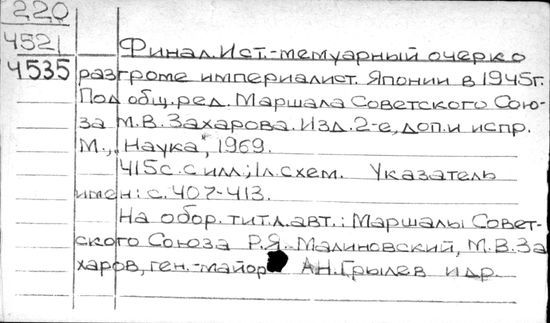 220
4521
4535
Финал. Ист.-мемуарный очерк о
разгроме империалист. Японии в 1945г.
Под общ. ред. Маршала Советского Сою-
за М.В. Захарова. Изд. 2-е, доп. и испр.
М., "Наука", 1969.
415с. с илл.; 1л. схем. Указатель
имен: с. 407-413.
На обор. тит. л. авт.: Маршалы Совет-
ского Союза Р.Я. Малиновский, М.В. За
харов, ген.-майор А.Н. Грылев и др.